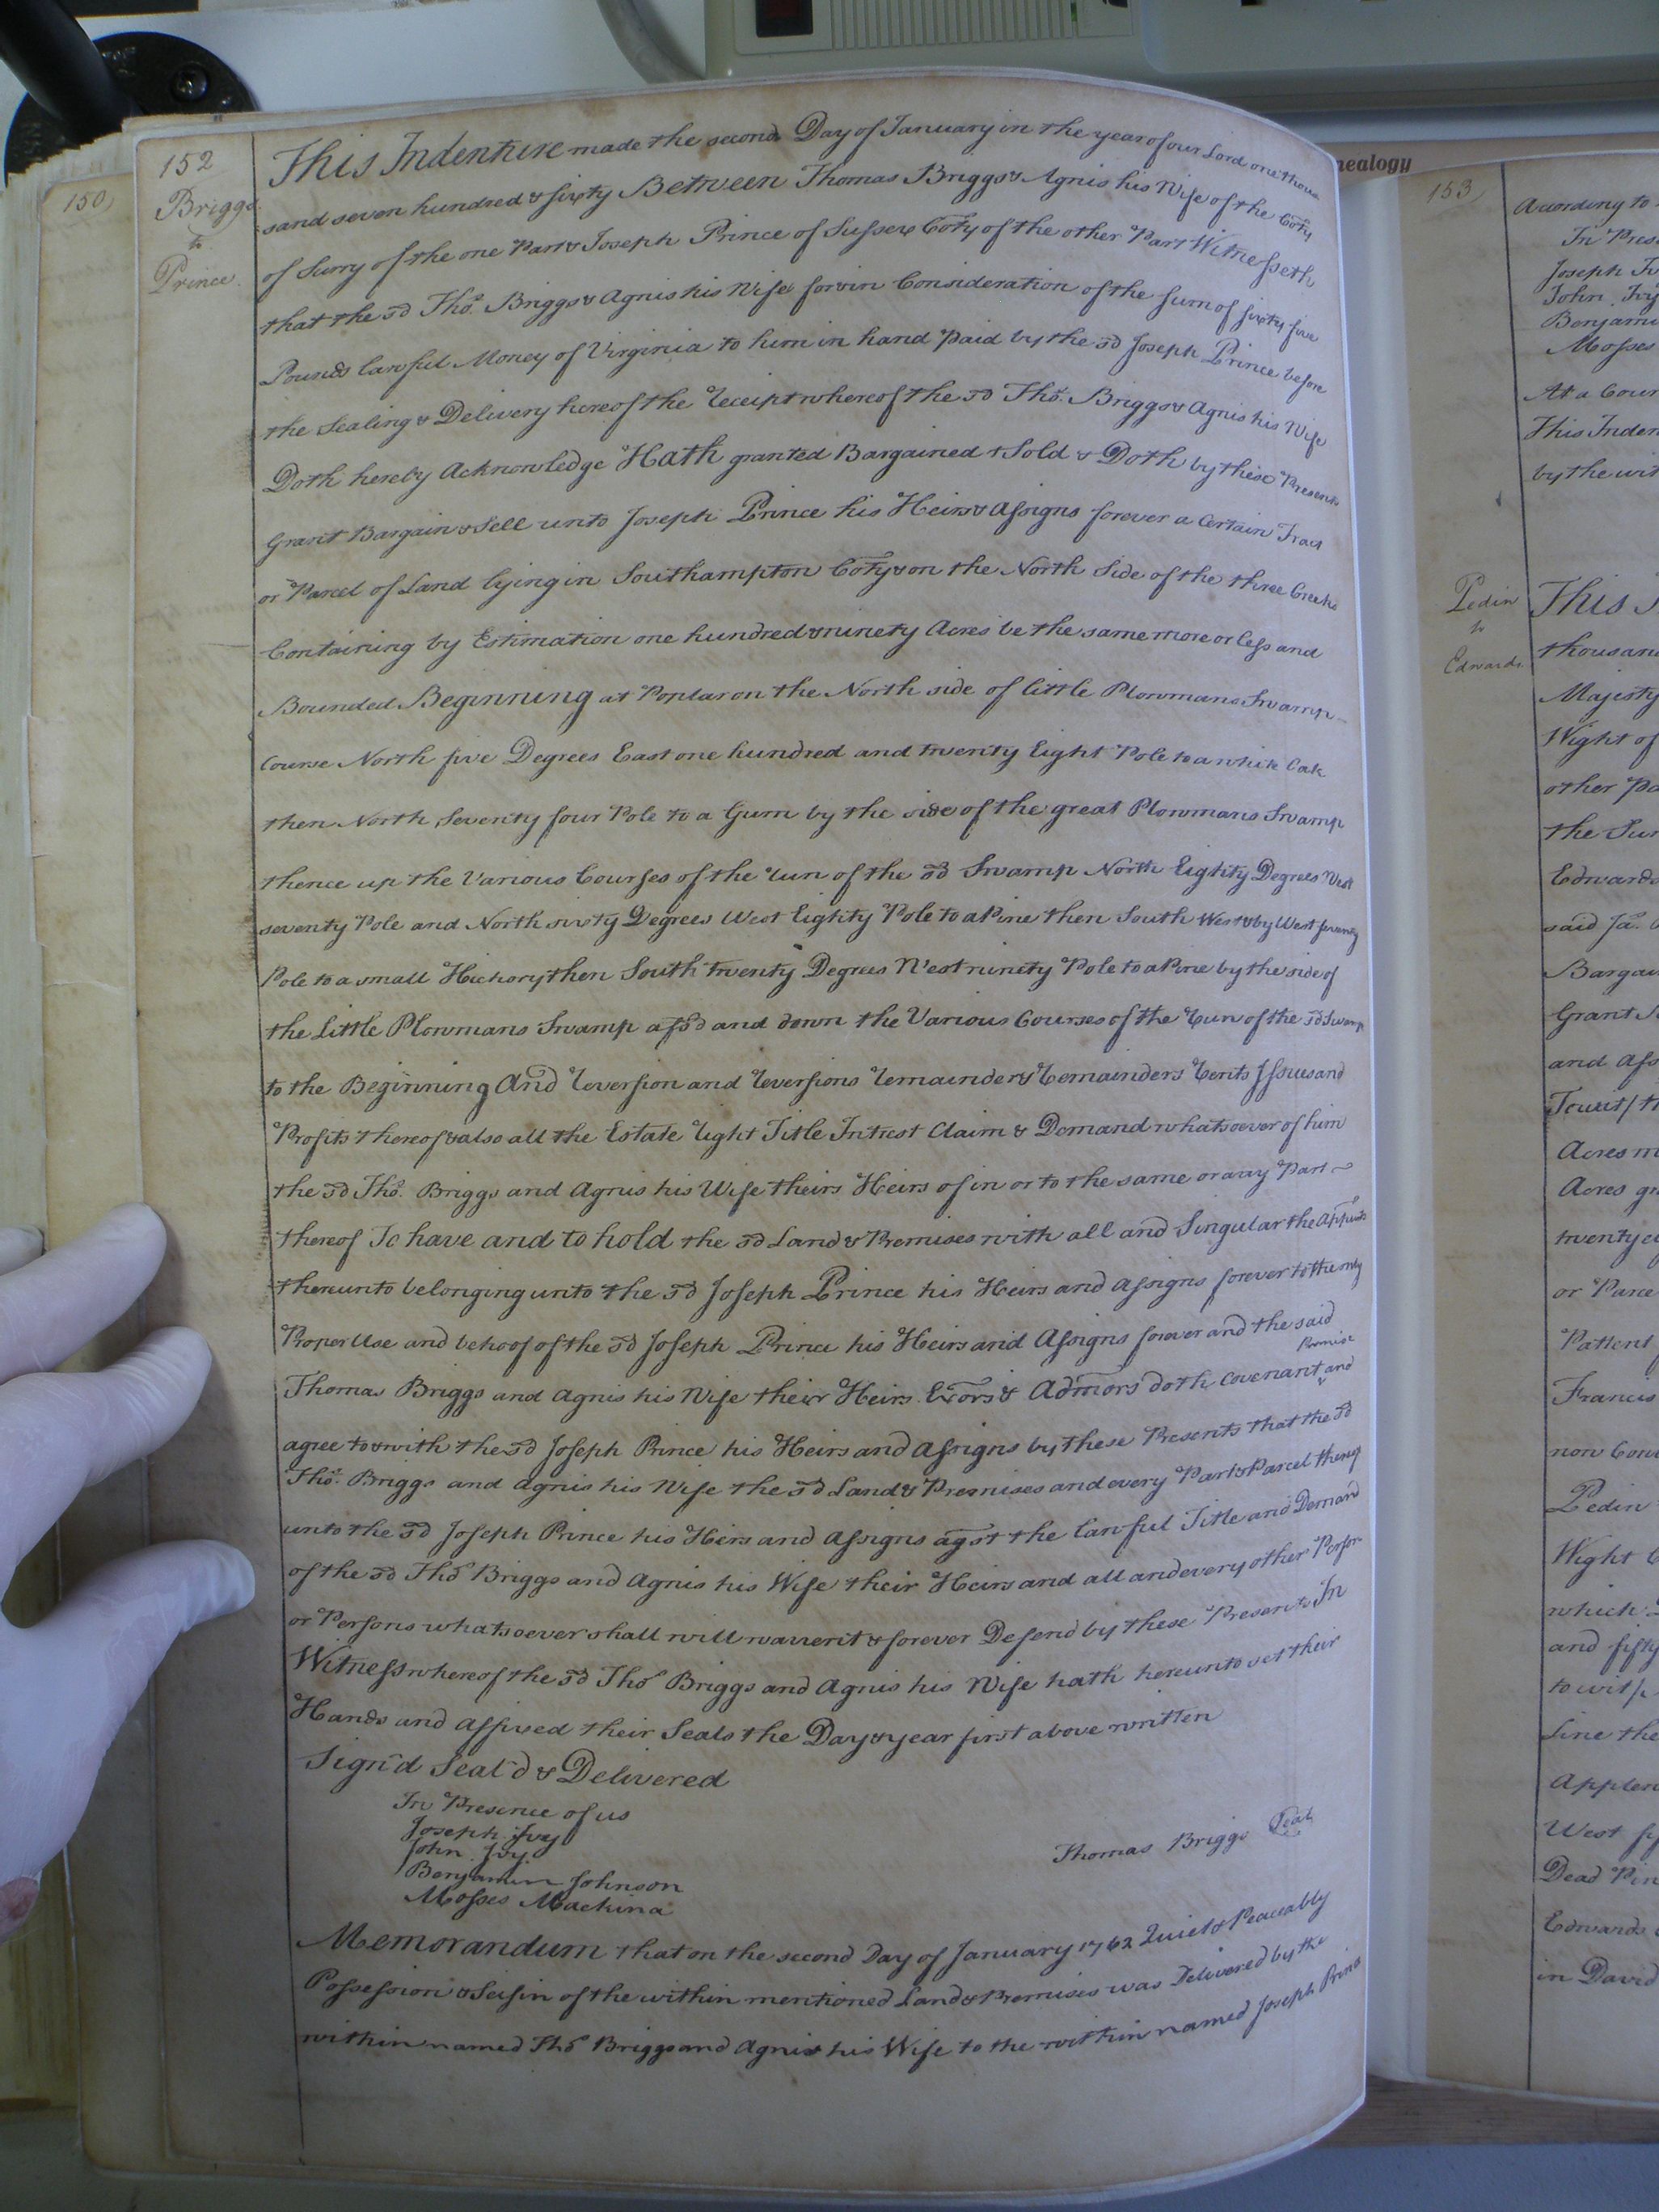 nealogy
150
152
Briggs
to
Prince
This Indenture made the second Day of January in the year of our Lord one thou
sand seven hundred & sixty Between Thomas Briggs & Agnis his Wife of the Coty
of Surry of the one Part & Joseph Prince of Sussex Coty of the other Part Witnesseth
that the sd Thos. Briggs & Agnis his Wife for & in Consideration of the sum of sixty five
Pounds lawful Money of Virginia to him in hand Paid by the sd Joseph Prince before
the Sealing & Delivery hereof the receipt whereof the sd Thos. Briggs & Agnis his Wife
Doth hereby Acknowledge Hath granted Bargained & Sold & Doth by these Presents
Grant Bargain & Sell unto Joseph Prince his Heirs & Assigns forever a Certain Tract
or Parcel of Land lying in Southampton Coty & on the North Side of the three Creeks
Containing by Estimation one hundred & ninety Acres be the same more or less and
Bounded Beginning at Poplar on the North side of little Plowmans Swamp
Course North five Degrees East one hundred and twenty Eight Pole to a white Oak
then North Seventy four Pole to a Gum by the side of the great Plowmans Swamp
thence up the Various Courses of the run of the sd Swamp North Eighty Degrees West
seventy Pole and North sixty Degrees West Eighty Pole to a Pine then South West & by West seventy
Pole to a small Hickory then South twenty Degrees West ninety Pole to a Pine by the side of
the Little Plowmans Swamp afsd and down the Various Courses of the run of the sd Swamp
to the Beginning And reversion and reversions remainder & remainders rents Issues and
Profits thereof & also all the Estate right Title Intrest Claim & Demand whatsoever of him
the sd Thos. Briggs and Agnis his Wife theirs Heirs of in or to the same or any Part
thereof To have and to hold the sd Land & Premises with all and Singular the Appurts
thereunto belonging unto the sd Joseph Prince his Heirs and Assigns forever to the only
Proper Use and behoof of the sd Joseph Prince his Heirs and Assigns forever and the said
Promise
Thomas Briggs and Agnis his Wife their Heirs Exors & Admors doth Covenant and
agree to & with the sd Joseph Prince his Heirs and Assigns by these Presents that the sd
Thos. Briggs and Agnis his Wife the sd Land & Premises and every Part & Parcel thereof
unto the sd Joseph Prince his Heirs and Assigns agst the lawful Title and Demand
of the sd Thos Briggs and Agnis his Wife their Heirs and all and every other Person
or Persons whatsoever shall will warrent & forever Defend by these Presents In
Witness whereof the sd Thos Briggs and Agnis his Wife hath hereunto set their
Hands and Affixed their Seals the Day & year first above written
Sign'd Seal'd & Delivered
In Presence of us
Joseph Ivy
John Ivy
Benjamin Johnson
Mosses Mackina
Thomas Briggs Seal
Memorandum that on the second Day of January 1762 Quiet & Peacably
Possession & Seisin of the within mentioned Land & Premises was Delivered by the
within named Thos Briggs and Agnis his Wife to the within named Joseph Prince
153
According to
In Pres
Joseph Iv
John Ivy
Benjami
Mosses
At a Cour
This Inden
by the wit
Pedin
to
Edwards
This
thousand
Majesty
Wight of
other Pa
the Sum
Edwards
said Ja.
Bargai
Grant
and Ass
Acres m
Acres gr
twenty ei
or Parce
Pattent
Francis
non Con
Pedin
Wight C
which
and fifty
to wit
Line the
West fif
Dead Pin
Edwards
in David